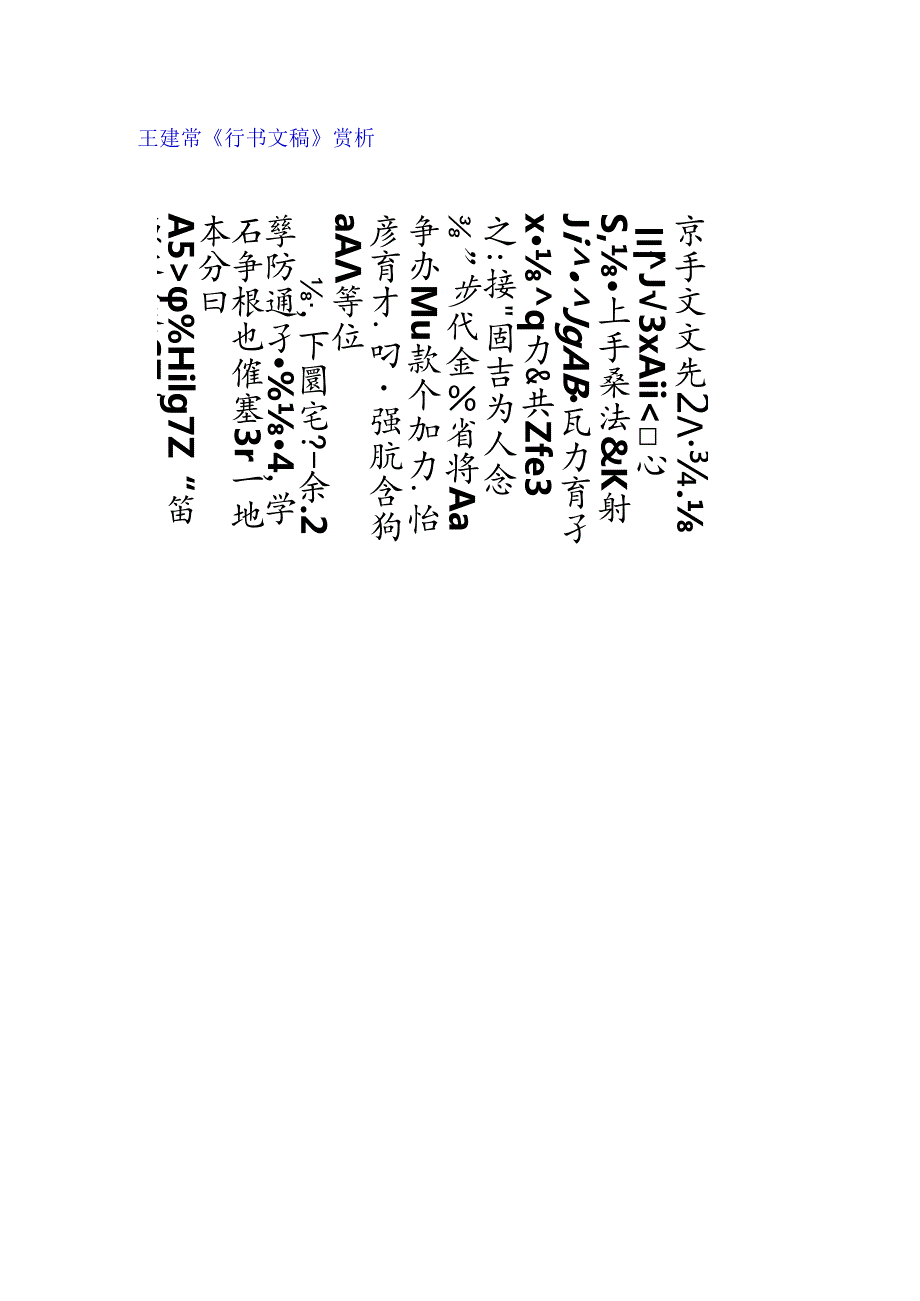 王建常《行书文稿》赏析
京手文文先2Λ·¾.⅛
S,⅛•上手桑法&K射
Ji^•^JgAB•瓦力育孑
x•⅛^q力&共Zfe3
之:接"固吉为人念
⅜”步代金%省将Aa
争办Mu款个加力.怡
彦育才.叼·强肮含狗
aAΛ等位
⅛;下圜宅?—余.2
孳防通孑•%⅛•4,学
石争根也傕塞3r一地
本分曰
A5>φ%Hilg7Z“笛